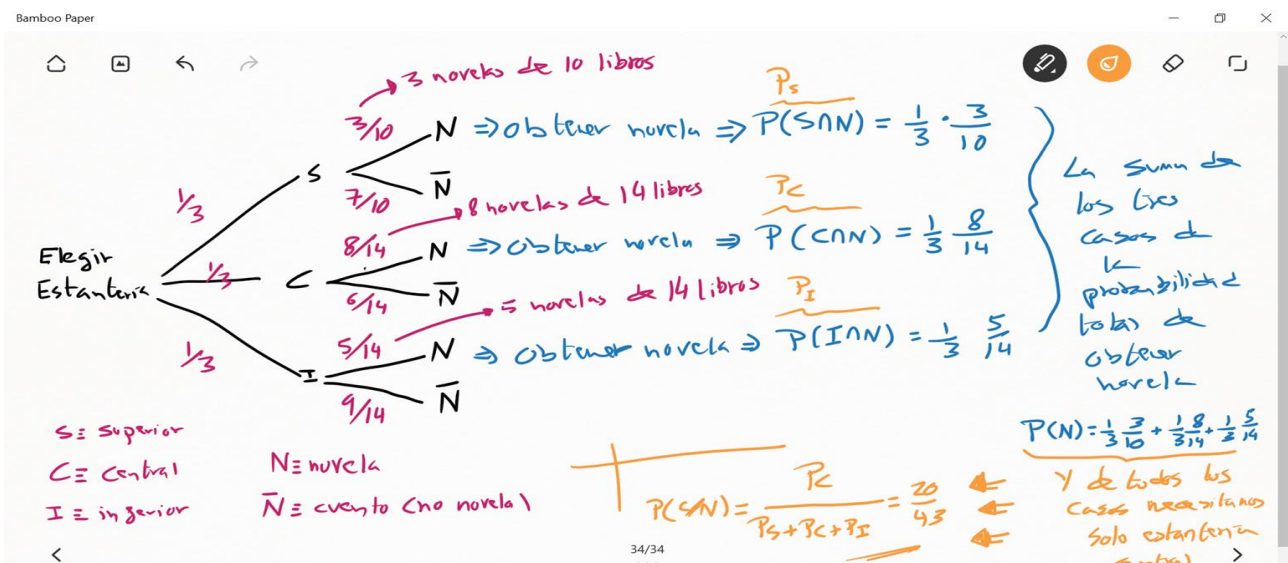 Bamboo Paper
3 novelas de 10 libros
3/10
N ⇒ obtener novela ⇒ P(S∩N) = 1/3 · 3/10
P_S
S
7/10
N̅
1/3
8 novelas de 14 libros
8/14
N ⇒ obtener novela ⇒ P(C∩N) = 1/3 8/14
P_C
Elegir
Estantería
1/3
C
6/14
N̅
5 novelas de 14 libros
5/14
N ⇒ obtener novela ⇒ P(I∩N) = 1/3 5/14
P_I
1/3
I
9/14
N̅
La suma de
los tres
casos de
la
probabilidad
total de
obtener
novela
P(N) = 1/3 3/10 + 1/3 8/14 + 1/3 5/14
S ≡ superior
C ≡ central
I ≡ inferior
N ≡ novela
N̅ ≡ cuento (no novela)
P(C/N) = P_C / (P_S + P_C + P_I) = 20/43
Y de todos los
casos necesitamos
solo estantería
central
34/34